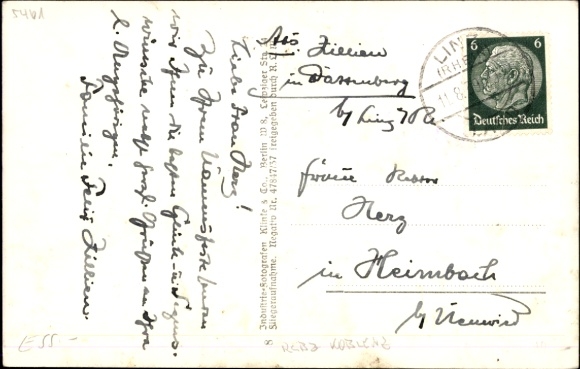 5461
Liebe Frau Herz!
Zu Ihrem Namensfeste senden
wir Ihnen die besten Glück- u. Segens-
wünsche nebst herzl. Grüßen an Ihre
l. Angehörigen.
Familie Felix Zillien.
8 Industrie-Fotografen Klinke & Co., Berlin W 8, Leipziger Str.
Fliegeraufnahme. Negativ Nr. 47847/37 freigegeben durch R.L.M.
Abs. Zillien
in Dattenberg
b/ Linz / Rh.
LINZ
(RHEIN)
11.8.
6 6
Deutsches Reich
Herz
in Heimbach
b/ Neuwied
E55.-
KOBLENZ